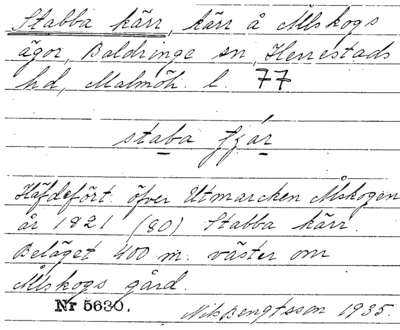 Stabba kärr, kärr å Ålskogs
ägor, Baldringe sn, Herrestads
hd, Malmöh. l. 77
staba fjár
Häfdefört öfver Utmarcken Ålskogen
år 1821 (80) Stabba kärr.
Beläget 400 m. väster om
Ålskogs gård.
Nr 5630.
Nils Bengtsson 1935.